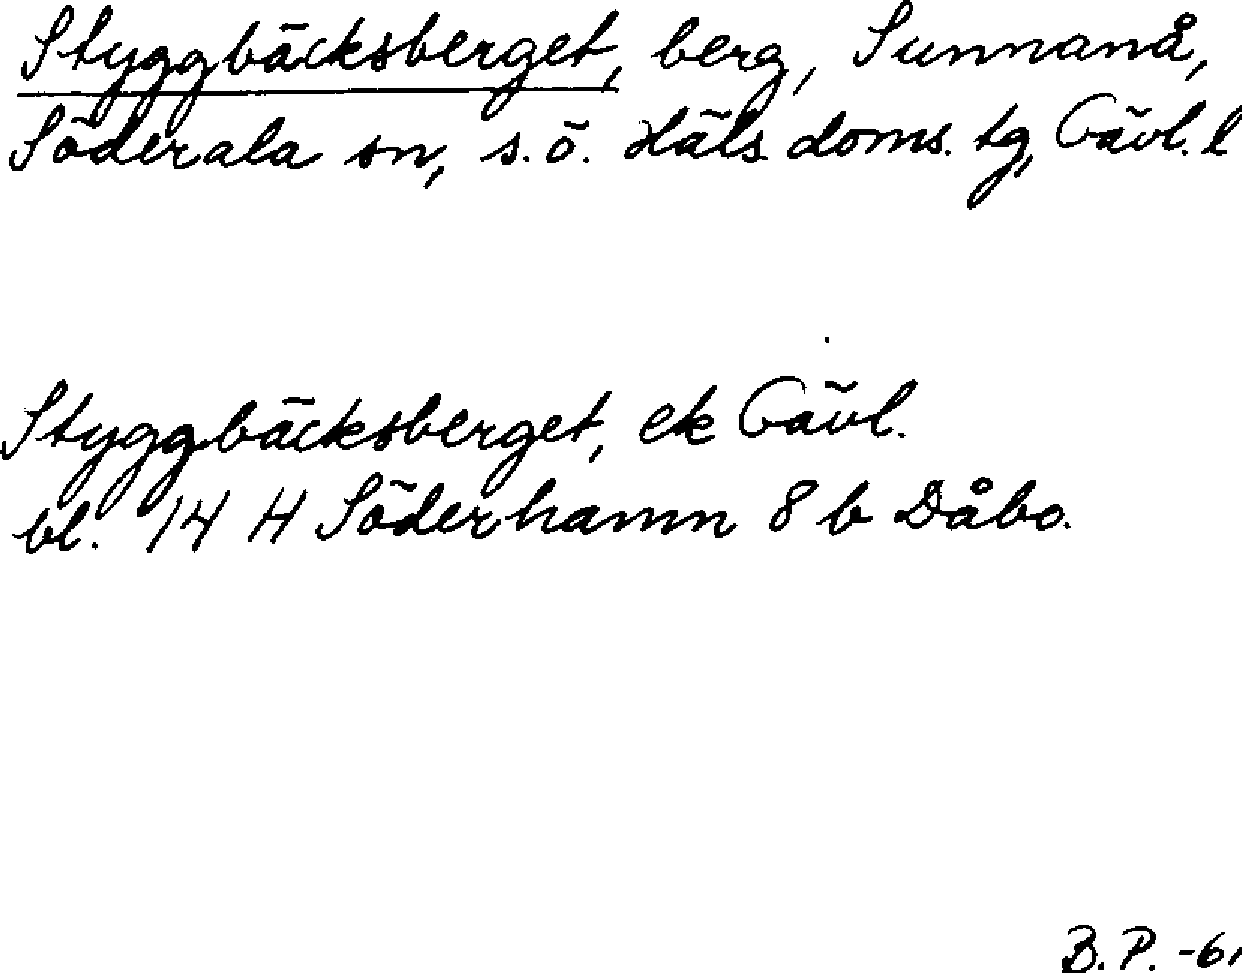 Styggbäcksberget, berg, Sunnanå,
Söderala sn, s. ö. Häls doms. tg, Gävl. l
Styggbäcksberget, ek Gävl.
bl. 14 H Söderhamn 8 b Dåbo.
B. P. -61